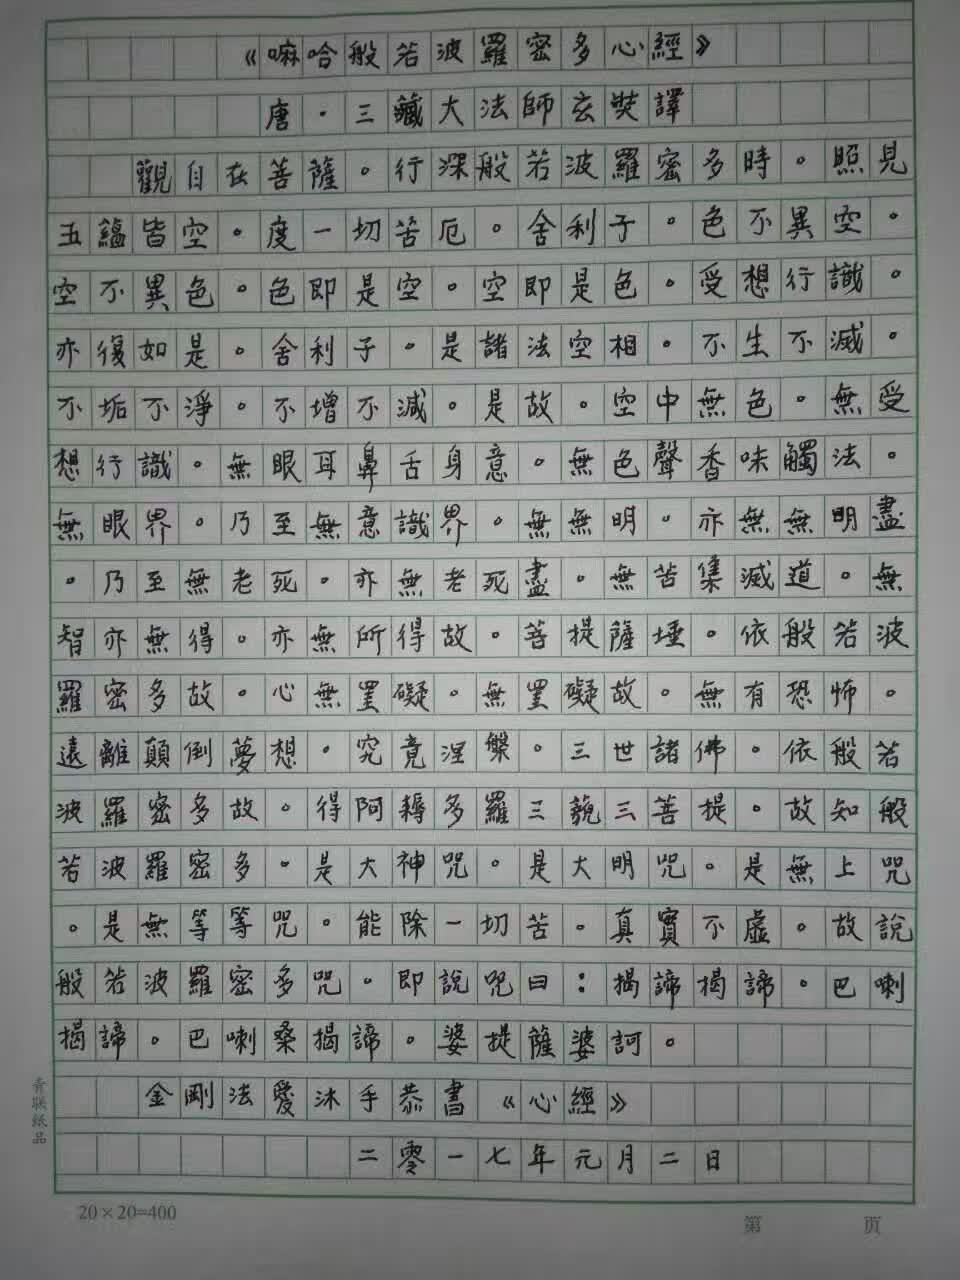 《嘛哈般若波羅密多心經》
唐．三藏大法師玄奘譯
觀自在菩薩。行深般若波羅密多時。照見
五蘊皆空。度一切苦厄。舍利子。色不異空。
空不異色。色即是空。空即是色。受想行識。
亦復如是。舍利子。是諸法空相。不生不滅。
不垢不淨。不增不減。是故。空中無色。無受
想行識。無眼耳鼻舌身意。無色聲香味觸法。
無眼界。乃至無意識界。無無明。亦無無明盡
。乃至無老死。亦無老死盡。無苦集滅道。無
智亦無得。亦無所得故。菩提薩埵。依般若波
羅密多故。心無罣礙。無罣礙故。無有恐怖。
遠離顛倒夢想。究竟涅槃。三世諸佛。依般若
波羅密多故。得阿耨多羅三藐三菩提。故知般
若波羅密多。是大神咒。是大明咒。是無上咒
。是無等等咒。能除一切苦。真實不虛。故說
般若波羅密多咒。即說咒曰：揭諦揭諦。巴喇
揭諦。巴喇桑揭諦。婆提薩婆訶。
金剛法愛沐手恭書《心經》
二零一七年元月二日
青联纸品
20×20=400
第 页